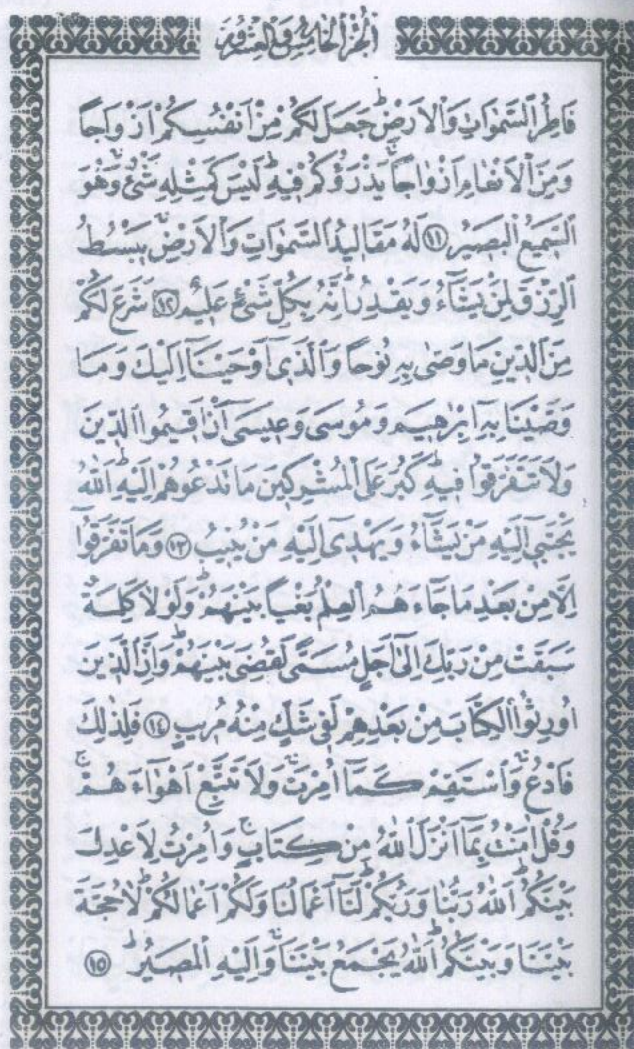 الجزء الخامس والعشرون
فَاطِرُ السَّمٰوَاتِ وَالْاَرْضِۜ جَعَلَ لَكُمْ مِنْ اَنْفُسِكُمْ اَزْوَاجًا
وَمِنَ الْاَنْعَامِ اَزْوَاجًاۚ يَذْرَؤُكُمْ فِيهِۜ لَيْسَ كَمِثْلِهِ شَيْءٌۚ وَهُوَ
السَّمِيعُ الْبَصِيرُ ﴿١١﴾ لَهُ مَقَالِيدُ السَّمٰوَاتِ وَالْاَرْضِۚ يَبْسُطُ
الرِّزْقَ لِمَنْ يَشَاءُ وَيَقْدِرُۜ اِنَّهُ بِكُلِّ شَيْءٍ عَلِيمٌ ﴿١٢﴾ شَرَعَ لَكُمْ
مِنَ الدِّينِ مَا وَصّٰى بِهِ نُوحًا وَالَّذِي اَوْحَيْنَا اِلَيْكَ وَمَا
وَصَّيْنَا بِهِ اِبْرٰهِيمَ وَمُوسٰى وَعِيسٰى اَنْ اَقِيمُوا الدِّينَ
وَلَا تَتَفَرَّقُوا فِيهِۜ كَبُرَ عَلَى الْمُشْرِكِينَ مَا تَدْعُوهُمْ اِلَيْهِۜ اَللّٰهُ
يَجْتَبِي اِلَيْهِ مَنْ يَشَاءُ وَيَهْدِي اِلَيْهِ مَنْ يُنِيبُ ﴿١٣﴾ وَمَا تَفَرَّقُوا
اِلَّا مِنْ بَعْدِ مَا جَاءَهُمُ الْعِلْمُ بَغْيًا بَيْنَهُمْۜ وَلَوْلَا كَلِمَةٌ
سَبَقَتْ مِنْ رَبِّكَ اِلٰى اَجَلٍ مُسَمًّى لَقُضِيَ بَيْنَهُمْۜ وَاِنَّ الَّذِينَ
اُورِثُوا الْكِتَابَ مِنْ بَعْدِهِمْ لَفِي شَكٍّ مِنْهُ مُرِيبٍ ﴿١٤﴾ فَلِذٰلِكَ
فَادْعُۚ وَاسْتَقِمْ كَمَا اُمِرْتَۚ وَلَا تَتَّبِعْ اَهْوَاءَهُمْۚ
وَقُلْ اٰمَنْتُ بِمَا اَنْزَلَ اللّٰهُ مِنْ كِتَابٍۚ وَاُمِرْتُ لِاَعْدِلَ
بَيْنَكُمْۜ اَللّٰهُ رَبُّنَا وَرَبُّكُمْۜ لَنَا اَعْمَالُنَا وَلَكُمْ اَعْمَالُكُمْۜ لَا حُجَّةَ
بَيْنَنَا وَبَيْنَكُمْۜ اَللّٰهُ يَجْمَعُ بَيْنَنَاۚ وَاِلَيْهِ الْمَصِيرُۜ ﴿١٥﴾